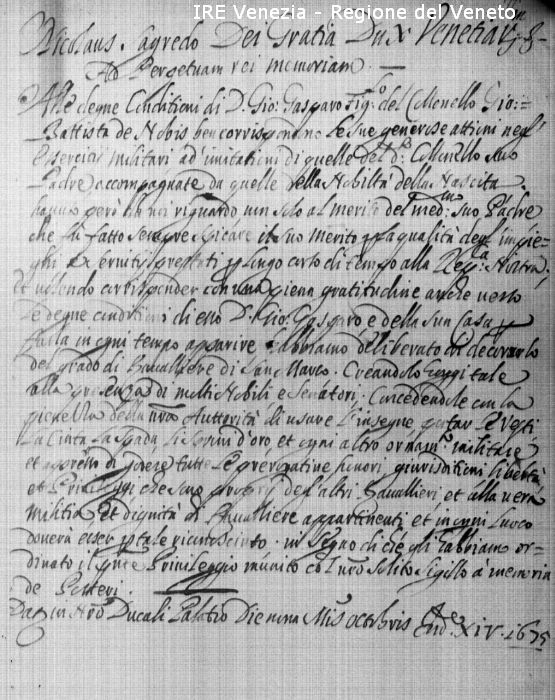 IRE Venezia - Regione del Veneto
Nicolaus Sagredo Dei Gratia Dux Venetiar
Ad Perpetuam rei memoriam
Alle degne Conditioni di D. Gio: Gasparo Fig.lo del Collonello Gio:
Battista de Nobis ben corrispondono le sue generose attioni negl'
Eserciti militari ad' imitationi di quelle del d:o Collonello suo
Padre accompagnate da quelle della Nobiltà della Nascita
hanno però riguardo non solo al merito del med:mo suo Padre
che fà fatto sempre spicare il suo merito qualità degl' impie-
ghi prestati lungo corso di tempo alla Rep:ca Nostra
et volendo corrisponder con una piena gratitudine anche verso
le degne conditioni di esso D. Gio: Gasparo e della sua Casa
farla in ogni tempo apparire Habbiamo deliberato di decorarlo
del grado di Cavalliere di San Marco. Creandolo tale
alla presenza di molti Nobili e Senatori; Concedendole con la
della nra Auttorità di usare l'insegne portar le Vesti
la Cinta la Spada li Sproni d'oro, et ogni altro ornam:to militare
et appresso di godere tutte le prerogative honori, giurisditioni libertà
et Privileggi che sono proprij degl'altri Cavallieri, et alla vera
militia, et dignità di Cavalliere appartinenti, et in ogni luoco
doverà esser p tale riconosciuto. in segno di che gli habbiamo or-
dinato il pnte Privileggio munito col nro solito Sigillo à memoria
de Posteri.
Dat. in Nro Ducali Palatio Die nona Mis octobris Ind.e XIV. 1675